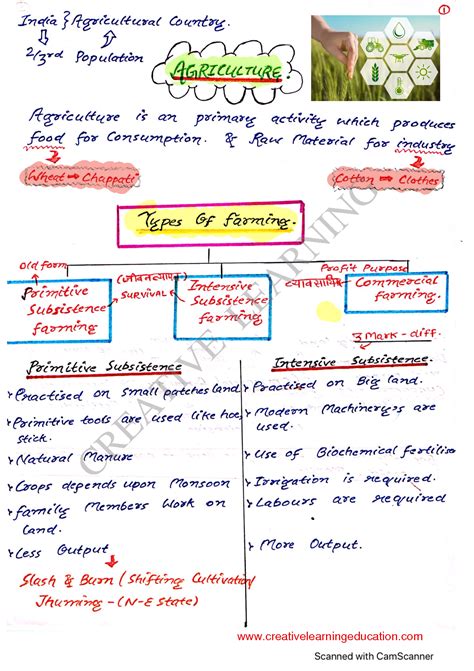 1
India } Agricultural Country.
2/3rd Population
AGRICULTURE.
Agriculture is an primary activity which produces
food for Consumption. & Raw Material for industry
Wheat → Chappati
Cotton → Clothes
Types Of farming.
Old form
Profit Purpose
Primitive
Subsistence
farming
(जीवनयापन)
SURVIVAL
Intensive
Subsistence
farming
व्यावसायिक
Commercial
farming.
3 Mark - diff.
Primitive Subsistence
Practised on small patches land.
Primitive tools are used like hoe,
stick.
Natural Manure
Crops depends upon Monsoon
family Members Work on
land.
Less Output
Slash & Burn / Shifting Cultivation/
Jhuming - (N-E State)
Intensive Subsistence.
Practised on Big land.
Modern Machinerys are
used.
Use of Biochemical fertiliser
Irrigation is required.
Labours are required
More Output.
CREATIVE LEARNING
www.creativelearningeducation.com
Scanned with CamScanner